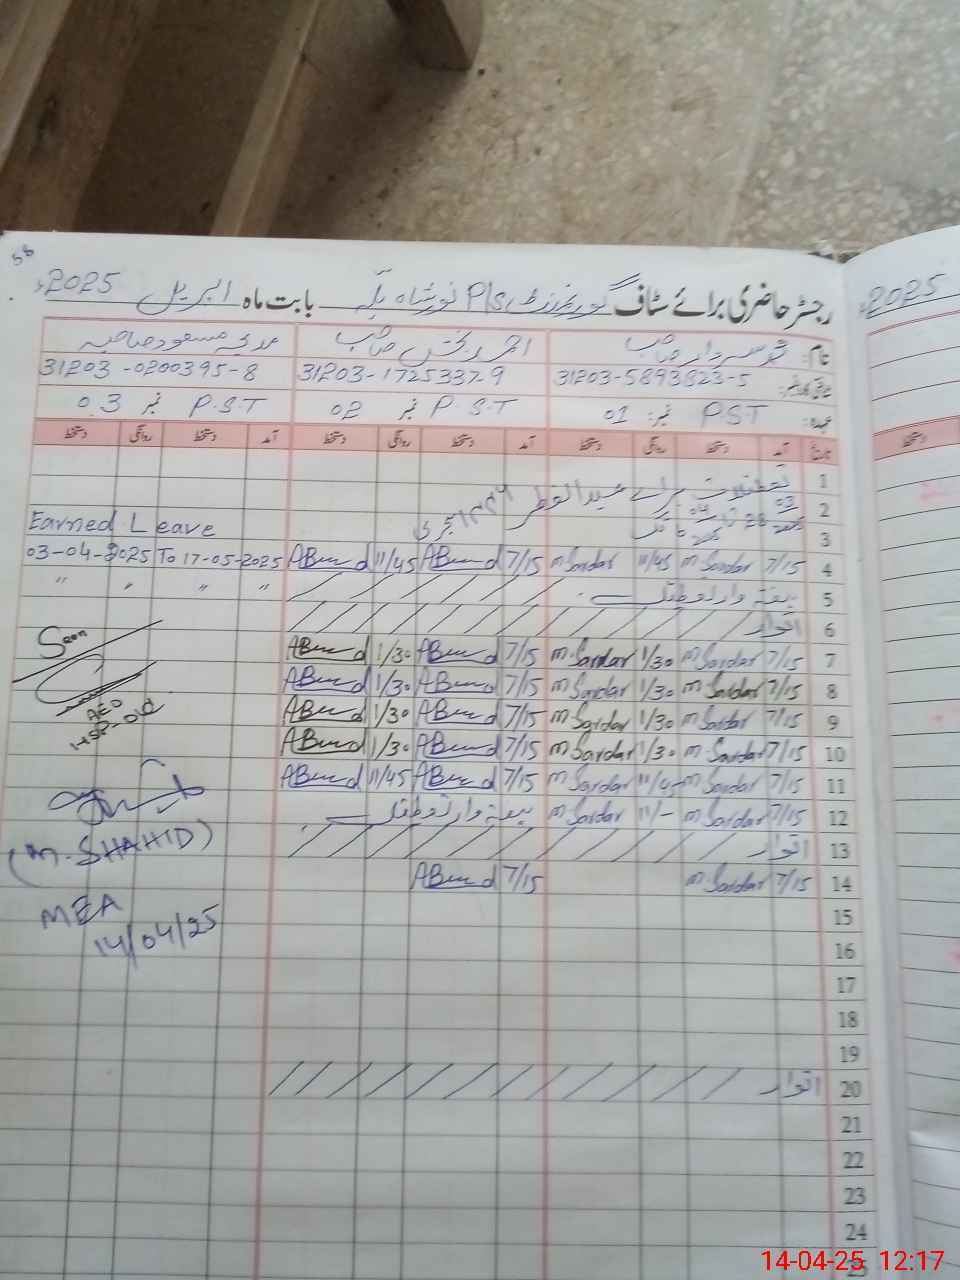 58
رجسٹر حاضری برائے سٹاف گورنمنٹ P/s نور شاہ بابت ماہ اپریل 2025ء
2025
نام: سردار صاحب احمد بخش صاحب مدیحہ مسعود صاحبہ
31203-5893823-5 31203-1725337-9 31203-0200395-8
عہدہ: P.S.T نمبر: 01 P.S.T نمبر 02 P.S.T نمبر 03
تاریخ آمد دستخط روانگی دستخط آمد دستخط روانگی دستخط آمد دستخط روانگی دستخط
دستخط
1 تعطیلات برائے عیدالفطر ۱۴۴۶ ہجری
2 28
3 تک Earned Leave
4 7/15 m Sardar 11/45 m Sardar 7/15 ABmed 11/45 ABmed 03-04-2025 To 17-05-2025
5 ہفتہ وار تعطیل " " " "
6 اتوار
7 7/15 m Sardar 1/30 m Sardar 7/15 ABmed 1/30 ABmed
Seen
8 7/15 m Sardar 1/30 m Sardar 7/15 ABmed 1/30 ABmed
9 7/15 m Sardar 1/30 m Sardar 7/15 ABmed 1/30 ABmed
AEO
10 7/15 m Sardar 1/30 m Sardar 7/15 ABmed 1/30 ABmed
11 7/15 m Sardar 11/45 m Sardar 7/15 ABmed 11/45 ABmed
12 7/15 m Sardar 11/- m Sardar ہفتہ وار تعطیل
13 اتوار
(M. SHAHID)
14 7/15 m Sardar 7/15 ABmed
MEA
14/04/25
15
16
17
18
19
20 اتوار
21
22
23
24
25
14-04-25 12:17